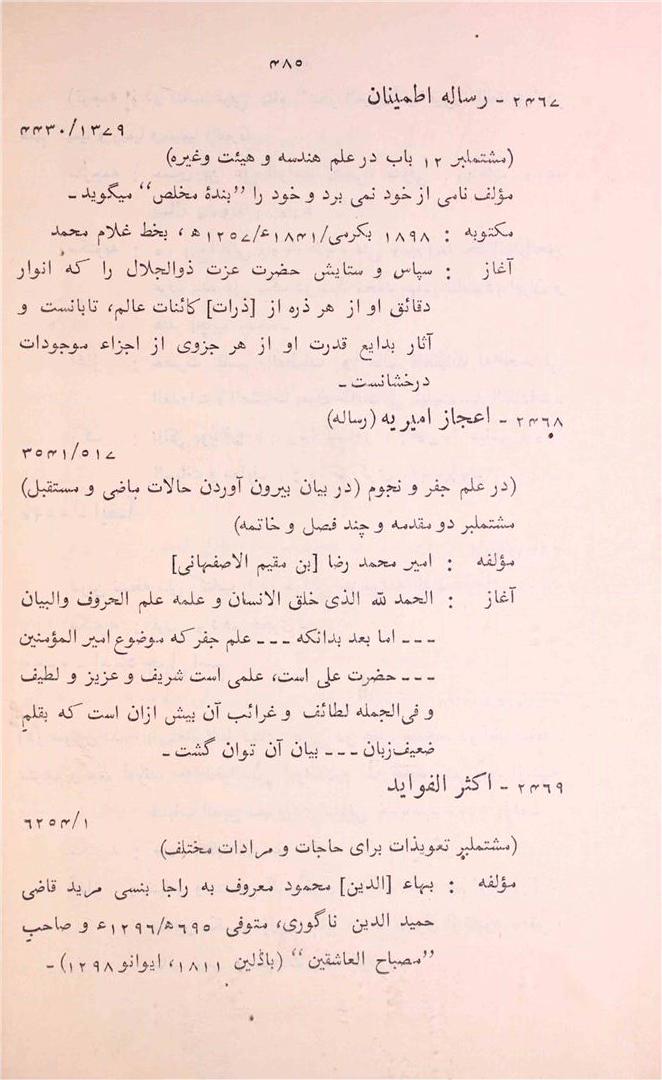 ۴۸۵
۲۴۶۷ - رساله اطمینان
۴۴۳۰/۱۳۷۹
(مشتملبر ۱۲ باب در علم هندسه و هیئت وغیره)
مؤلف نامی از خود نمی برد و خود را ”بندهٔ مخلص“ میگوید ـ
مکتوبه : ۱۸۹۸ بکرمی/۱۸۴۱ء/۱۲۵۷ھ، بخط غلام محمد
آغاز : سپاس و ستایش حضرت عزت ذوالجلال را که انوار
دقائق او از هر ذره از [ذرات] کائنات عالم، تابانست و
آثار بدایع قدرت او از هر جزوی از اجزاء موجودات
درخشانست ـ
۲۴۶۸ - اعجاز امیریه (رساله)
۳۵۴۱/۵۱۷
(در علم جفر و نجوم (در بیان بیرون آوردن حالات ماضی و مستقبل)
مشتملبر دو مقدمه و چند فصل و خاتمه)
مؤلفه : امیر محمد رضا [بن مقیم الاصفهانی]
آغاز : الحمد لله الذی خلق الانسان و علمه علم الحروف والبیان
ـ ـ ـ اما بعد بدانکه ـ ـ ـ علم جفر که موضوع امیر المؤمنین
ـ ـ ـ حضرت علی است، علمی است شریف و عزیز و لطیف
و فی‌الجمله لطائف و غرائب آن بیش ازان است که بقلمِ
ضعیف‌زبان ـ ـ ـ بیان آن توان گشت ـ
۲۴۶۹ - اکثر الفواید
۶۲۵۴/۱
(مشتملبر تعویذات برای حاجات و مرادات مختلف)
مؤلفه : بهاء [الدین] محمود معروف به راجا بنسی مرید قاضی
حمید الدین ناگوری، متوفی ۶۹۵ھ/۱۲۹۶ء و صاحبِ
”مصباح العاشقین“ (باڈلین ۱۸۱۱، ایوانو ۱۲۹۸) ـ